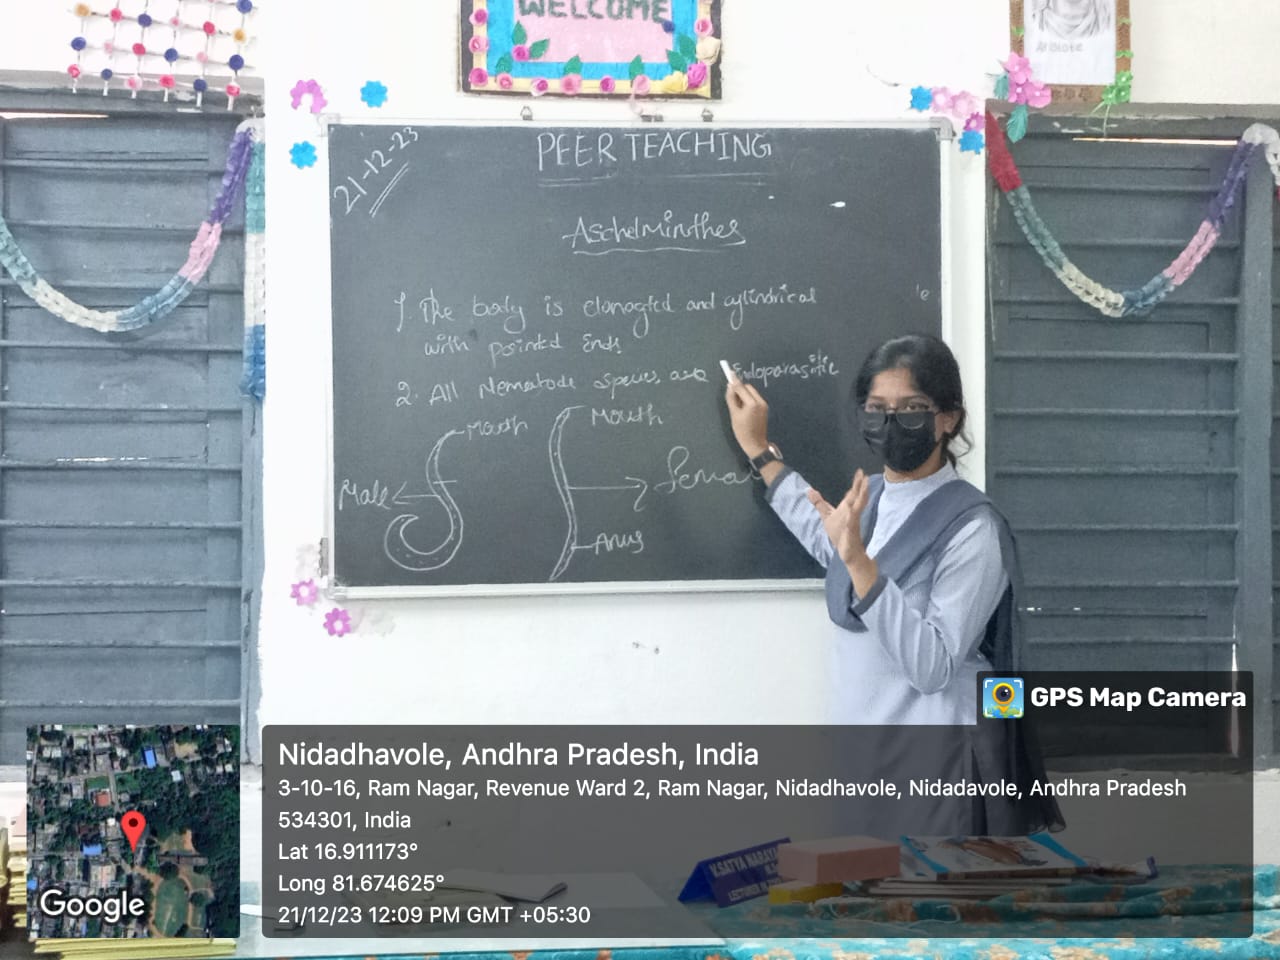 WELCOME
Aristotle
21-12-23
PEER TEACHING
Aschelminthes
1 The body is elonagted and cylindrical
with pointed Ends.
2. All Nematode species are Endoparasitic
Mouth
Mouth
Male
Female
Anus
GPS Map Camera
Nidadhavole, Andhra Pradesh, India
3-10-16, Ram Nagar, Revenue Ward 2, Ram Nagar, Nidadhavole, Nidadavole, Andhra Pradesh
534301, India
Lat 16.911173°
Long 81.674625°
21/12/23 12:09 PM GMT +05:30
Google
V.SATYA NARAYA
LECTURER IN